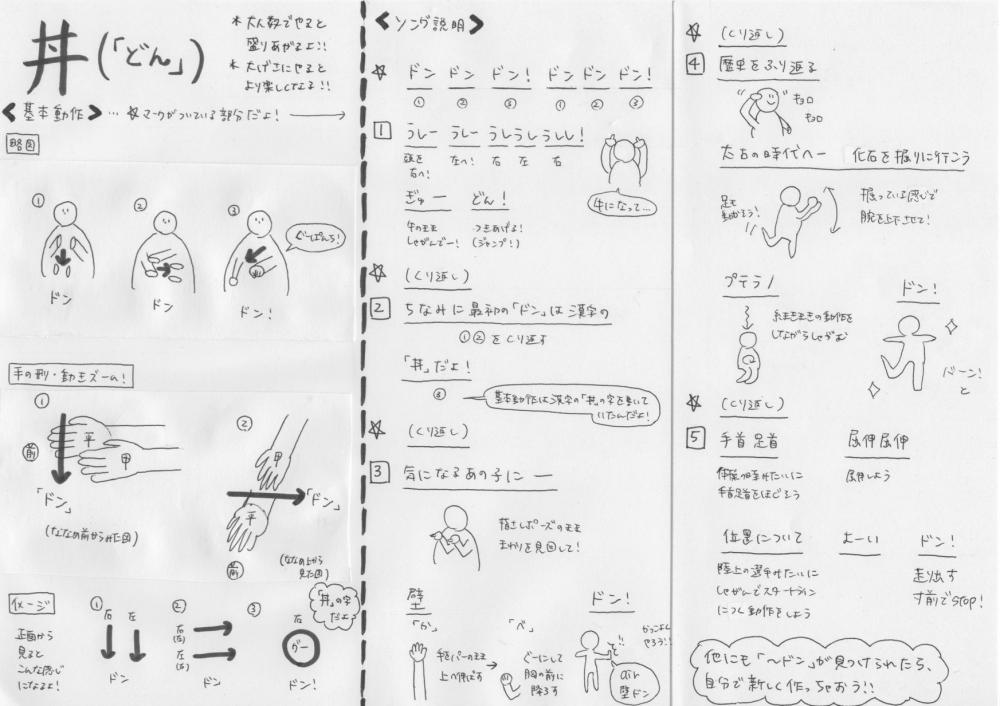 丼(「どん」)
* 大人数でやると
盛りあがるよ!!
* 大げさにやると
より楽しくなる!!
《基本動作》… ☆マークがついている部分だよ! →
略図
① ② ③
ぐーぱんち!
ドン ドン ドン!
手の形・動きズーム!
①
平
甲
前
「ドン」
(ななめ前からみた図)
②
甲
平
「ドン」
前
(ななめ上から
見た図)
イメージ
正面から
見ると
こんな感じ
になるよ!
① 右 左
ドン
② 右(右)
左(左)
ドン
③ 右
グー
ドン!
「丼」の字
だよ
《ソング説明》
☆ ドン ドン ドン! ドン ドン ドン!
① ② ③ ① ② ③
1 うしー うしー うしうし うしし!
頭を
右へ! 左へ! 右 左 右
牛になって…
ぎゅー どん!
牛のまま
しゃがんでー!
→つきあげる!
(ジャンプ!)
☆ (くり返し)
2 ちなみに最初の「ドン」は漢字の
①②をくり返す
「丼」だよ!
③
基本動作は漢字の「丼」の字を書いて
いたんだよ!
☆ (くり返し)
3 気になるあの子に ー
指さしポーズのまま
まわりを見回して!
壁 ドン!
「か」 「べ」
手をパーのまま
上へ伸ばす
→ ぐーにして
胸の前に
降ろす
かっこよく
やろう!!
air
壁ドン
☆ (くり返し)
4 歴史をふり返る
キョロ
キョロ
太古の時代へー 化石を掘りに行こう
足も
動かそう!
掘っている感じで
腕を上下させて!
プテラノ ドン!
しながらしゃがむ
バーン!
と
☆ (くり返し)
5 手首足首 屈伸屈伸
体操の時みたいに
手首足首をほぐそう
屈伸しよう
位置について よーい ドン!
陸上の選手みたいに
しゃがんでスタートライン
につく動作をしよう
走り出す
寸前でSTOP!
他にも「〜ドン」が見つけられたら、
自分で新しく作っちゃおう!!